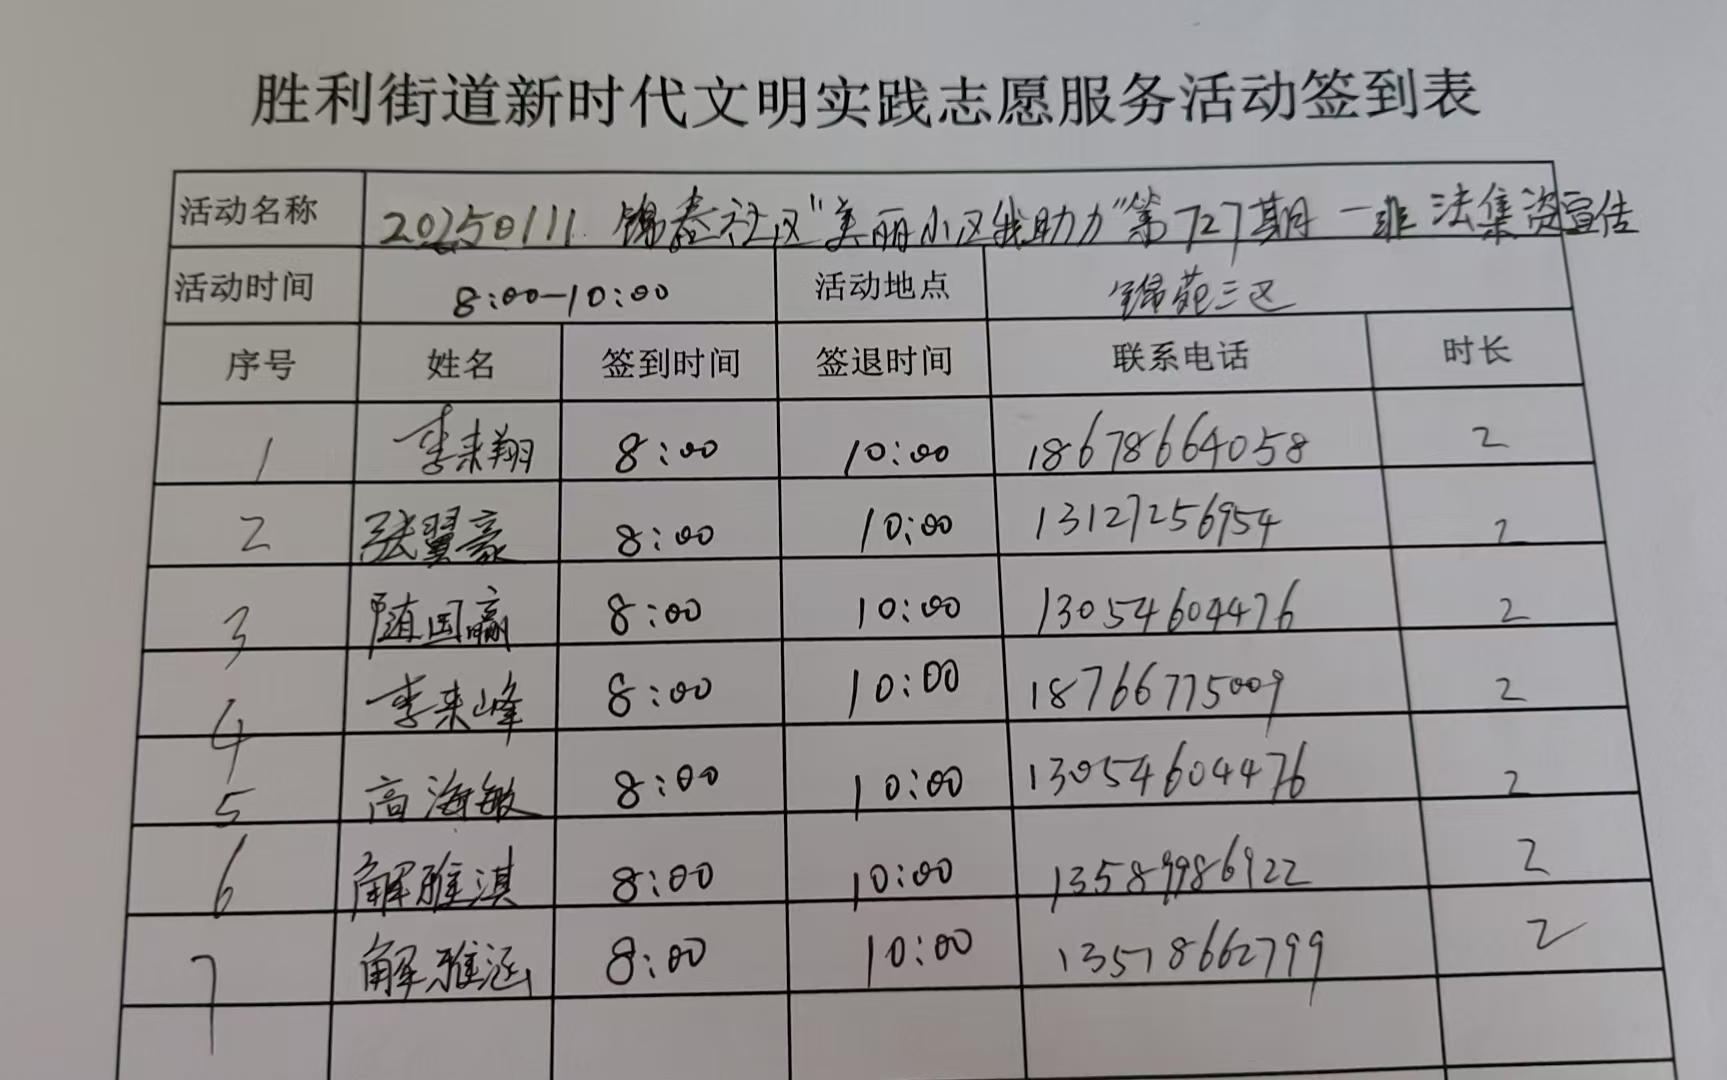 胜利街道新时代文明实践志愿服务活动签到表
活动名称 20250111 锦春社区"美丽小区我助力"第727期一非法集资宣传
活动时间 8:00-10:00 活动地点 锦苑三区
序号 姓名 签到时间 签退时间 联系电话 时长
1 李来翔 8:00 10:00 18678664058 2
2 张翼豪 8:00 10:00 13127256954 2
3 随国赢 8:00 10:00 13054604476 2
4 李来峰 8:00 10:00 18766775009 2
5 高海敏 8:00 10:00 13054604476 2
6 解雅淇 8:00 10:00 13589986922 2
7 解雅涵 8:00 10:00 13578662799 2